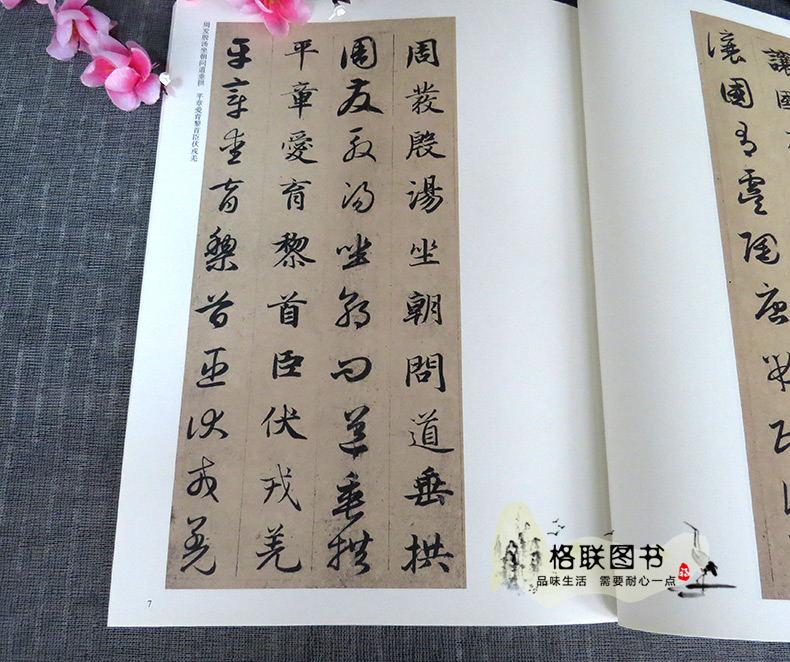 讓國
讓國有虞陶唐弔民
周發殷湯坐朝問道垂拱
周發殷湯坐朝問道垂拱
平章愛育黎首臣伏戎羌
平章愛育黎首臣伏戎羌
周发殷汤坐朝问道垂拱 平章爱育黎首臣伏戎羌
7
格联图书
品味生活 需要耐心一点